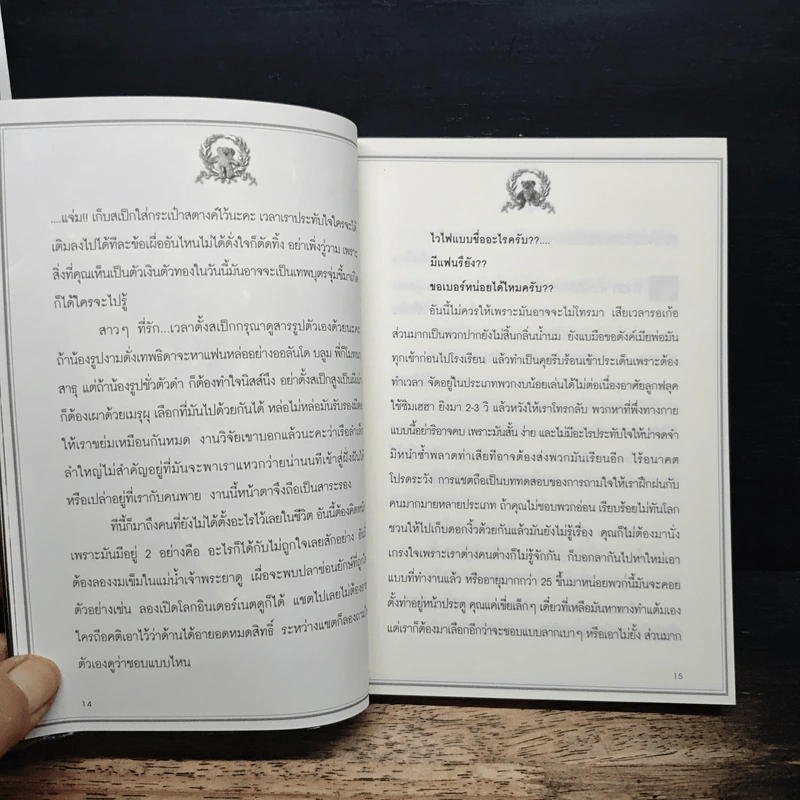 ....แจ่ม!! เก็บสเป็กใส่กระเป๋าสตางค์ไว้นะคะ เวลาเราประทับใจใครจะได้
เติมลงไปได้ทีละข้อเผื่ออันไหนไม่ได้ดั่งใจก็ตัดทิ้ง อย่าเพิ่งวู่วาม เพราะ
สิ่งที่คุณเห็นเป็นตัวเงินตัวทองในวันนี้มันอาจจะเป็นเทพบุตรจุ่มขี้มาเกิด
ก็ได้ใครจะไปรู้
สาวๆ ที่รัก...เวลาตั้งสเป็กกรุณาดูสารรูปตัวเองด้วยนะคะ
ถ้าน้องรูปงามดั่งเทพธิดาจะหาแฟนหล่ออย่างออลันโด บลูม พี่ก็โมทนา
สาธุ แต่ถ้าน้องรูปชั่วตัวดำ ก็ต้องทำใจนิสส์นึง อย่าตั้งสเปสูงเป็นผีเปรต
ก็ต้องเผาด้วยเมรุผุ เลือกที่มันไปด้วยกันได้ หล่อไม่หล่อมันรับรองมีดี
ให้เราขย่มเหมือนกันหมด งานวิจัยเขาบอกแล้วนะคะว่าเรือลำเล็ก
ลำใหญ่ไม่สำคัญอยู่ที่มันจะพาเราแหวกว่ายน่านนทีเข้าสู่ฝั่งฝันได้
หรือเปล่าอยู่ที่เรากับคนพาย งานนี้หน้าตาจึงถือเป็นสาระรอง
ทีนี้ก็มาถึงคนที่ยังไม่ได้ตั้งอะไรไว้เลยในชีวิต อันนี้ต้องคิดหนัก
เพราะมันมีอยู่ 2 อย่างคือ อะไรก็ได้กับไม่ถูกใจเลยสักอย่าง
ต้องลองงมเข็มในแม่น้ำเจ้าพระยาดู เผื่อจะพบปลาช่อนยักษ์ที่ถูกใจ
ตัวอย่างเช่น ลองเปิดโลกอินเตอร์เนตดูก็ได้ แชตไปเลยไม่ต้องอาย
ใครถือคติเอาไว้ว่าด้านได้อายอดหมดสิทธิ์ ระหว่างแชตก็ลองถามใจ
ตัวเองดูว่าชอบแบบไหน
14
ไวไฟแบบชื่ออะไรครับ??....
มีแฟนรึยัง??
ขอเบอร์หน่อยได้ไหมครับ??
อันนี้ไม่ควรให้เพราะมันอาจจะไม่โทรมา เสียเวลารอเก้อ
ส่วนมากเป็นพวกปากยังไม่สิ้นกลิ่นน้ำนม ยังแบมือขอตังค์เมียพ่อมัน
ทุกเช้าก่อนไปโรงเรียน แล้วทำเป็นคุยรีบร้อนเข้าประเด็นเพราะต้อง
ทำเวลา จัดอยู่ในประเภทพวกงบน้อยเล่นได้ไม่ต่อเนื่องอาศัยลูกฟลุค
ใช้ซิมเฮฮา ยิงมา 2-3 วิ แล้วหวังให้เราโทรกลับ พวกหาที่พึ่งทางกาย
แบบนี้อย่าริอาจคบ เพราะมันสั้น ง่าย และไม่มีอะไรประทับใจให้น่าจดจำ
มิหนำซ้ำพลาดท่าเสียทีอาจต้องส่งพวกมันเรียนอีก ไร้อนาคต
โปรดระวัง การแชตถือเป็นบททดสอบของการถามใจให้เราฝึกฝนกับ
คนมากมายหลายประเภท ถ้าคุณไม่ชอบพวกอ่อน เรียบร้อยไม่ทันโลก
ชวนให้ไปเก็บดอกงิ้วด้วยกันแล้วมันยังไม่รู้เรื่อง คุณก็ไม่ต้องมานั่ง
เกรงใจเพราะเราต่างคนต่างก็ไม่รู้จักกัน ก็บอกลากันไปหาใหม่เอา
แบบที่ทำงานแล้ว หรืออายุมากกว่า 25 ขึ้นมาหน่อยพวกนี้มันจะคอย
ตั้งท่าอยู่หน้าประตู คุณแค่เขี่ยเล็กๆ เดี๋ยวที่เหลือมันหาทางทำแต้มเอง
แต่เราก็ต้องมาเลือกอีกว่าจะชอบแบบลากเบาๆ หรือเอาไม่ยั้ง ส่วนมาก
15